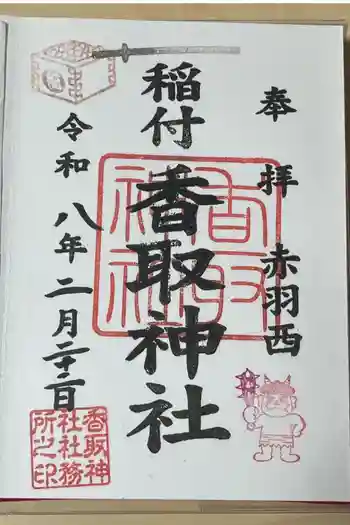 奉拝 赤羽西
稲付
香取神社
令和八年二月二十二日
香取神社
香取神
社社務
所之印